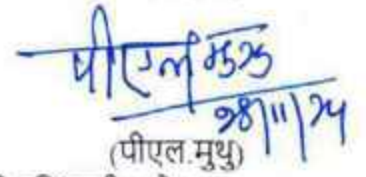 पीएल मुथु
28/11/24
(पीएल.मुथु)